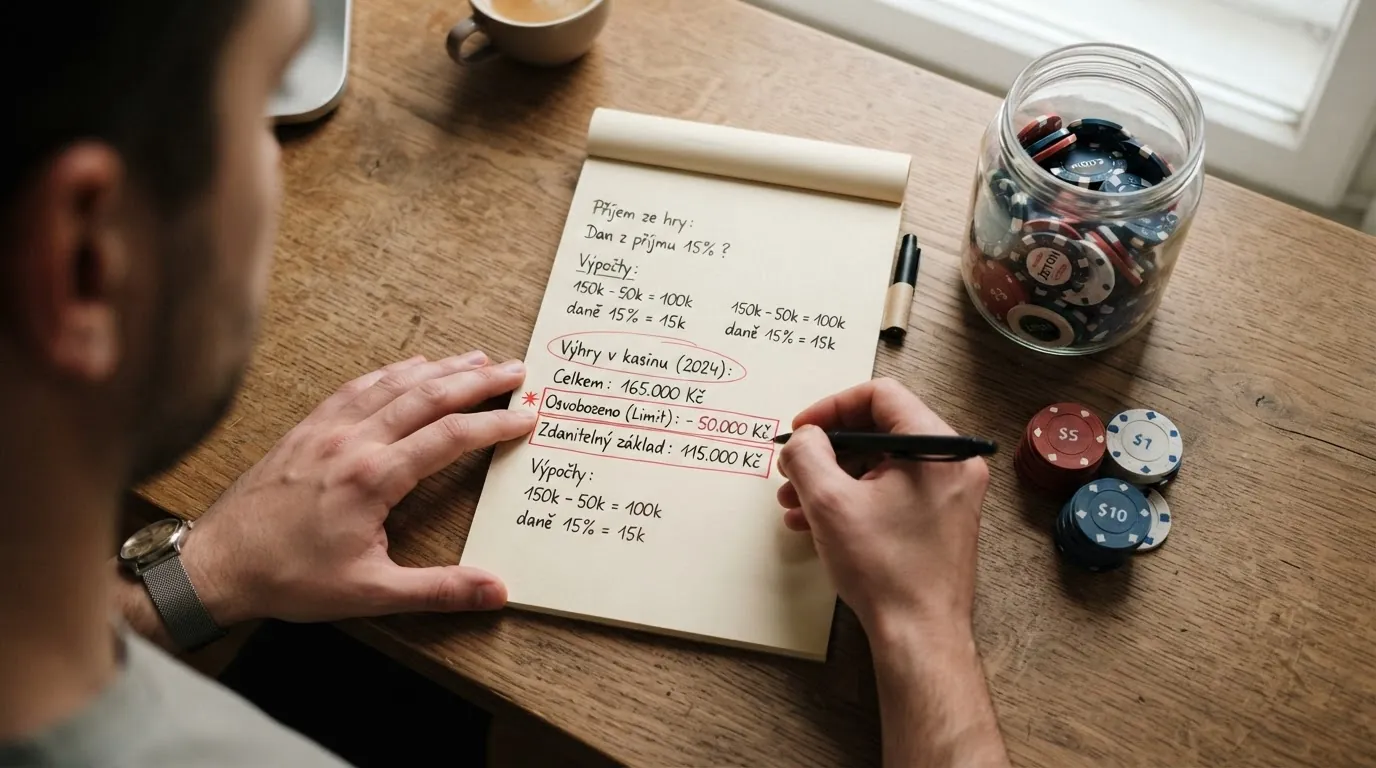 Příjem ze hry:
Dan z příjmu 15% ?
Výpočty:
150k - 50k = 100k
daně 15% = 15k
150k - 50k = 100k
daně 15% = 15k
Výhry v kasinu (2024):
Celkem: 165.000 Kč
Osvobozeno (Limit): - 50.000 Kč
Zdanitelný základ: 115.000 Kč
Výpočty:
150k - 50k = 100k
daně 15% = 15k
$5
$1
$10